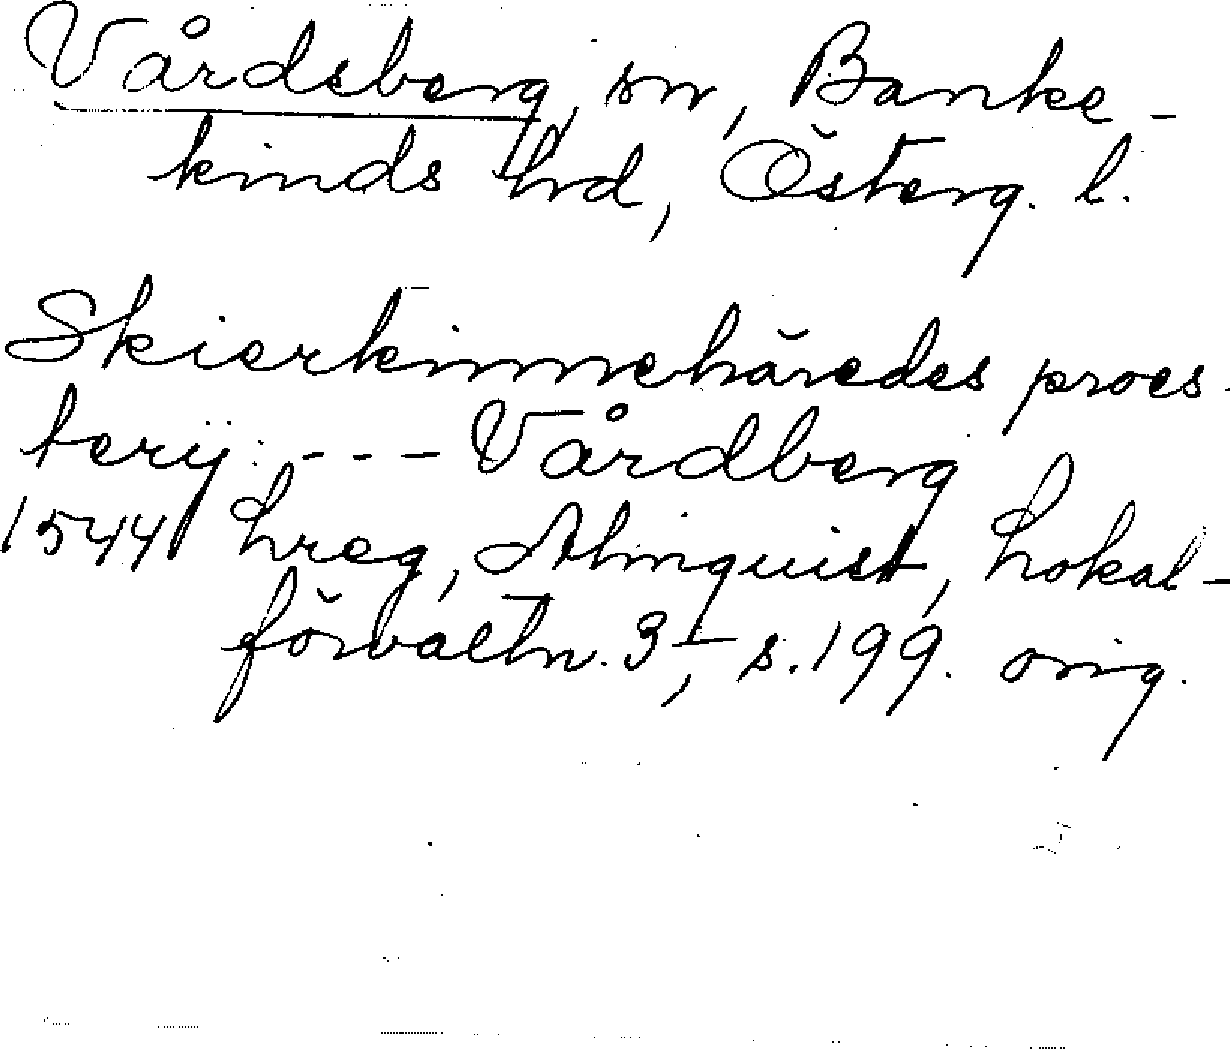 Vårdsberg, sn, Banke-
kinds hrd, Österg. l.
Skierkinnehäredes proes-
terij: --- Vårdberg
1544 hreg, Almquist, Lokal-
förvaltn. 3, s. 199. orig.